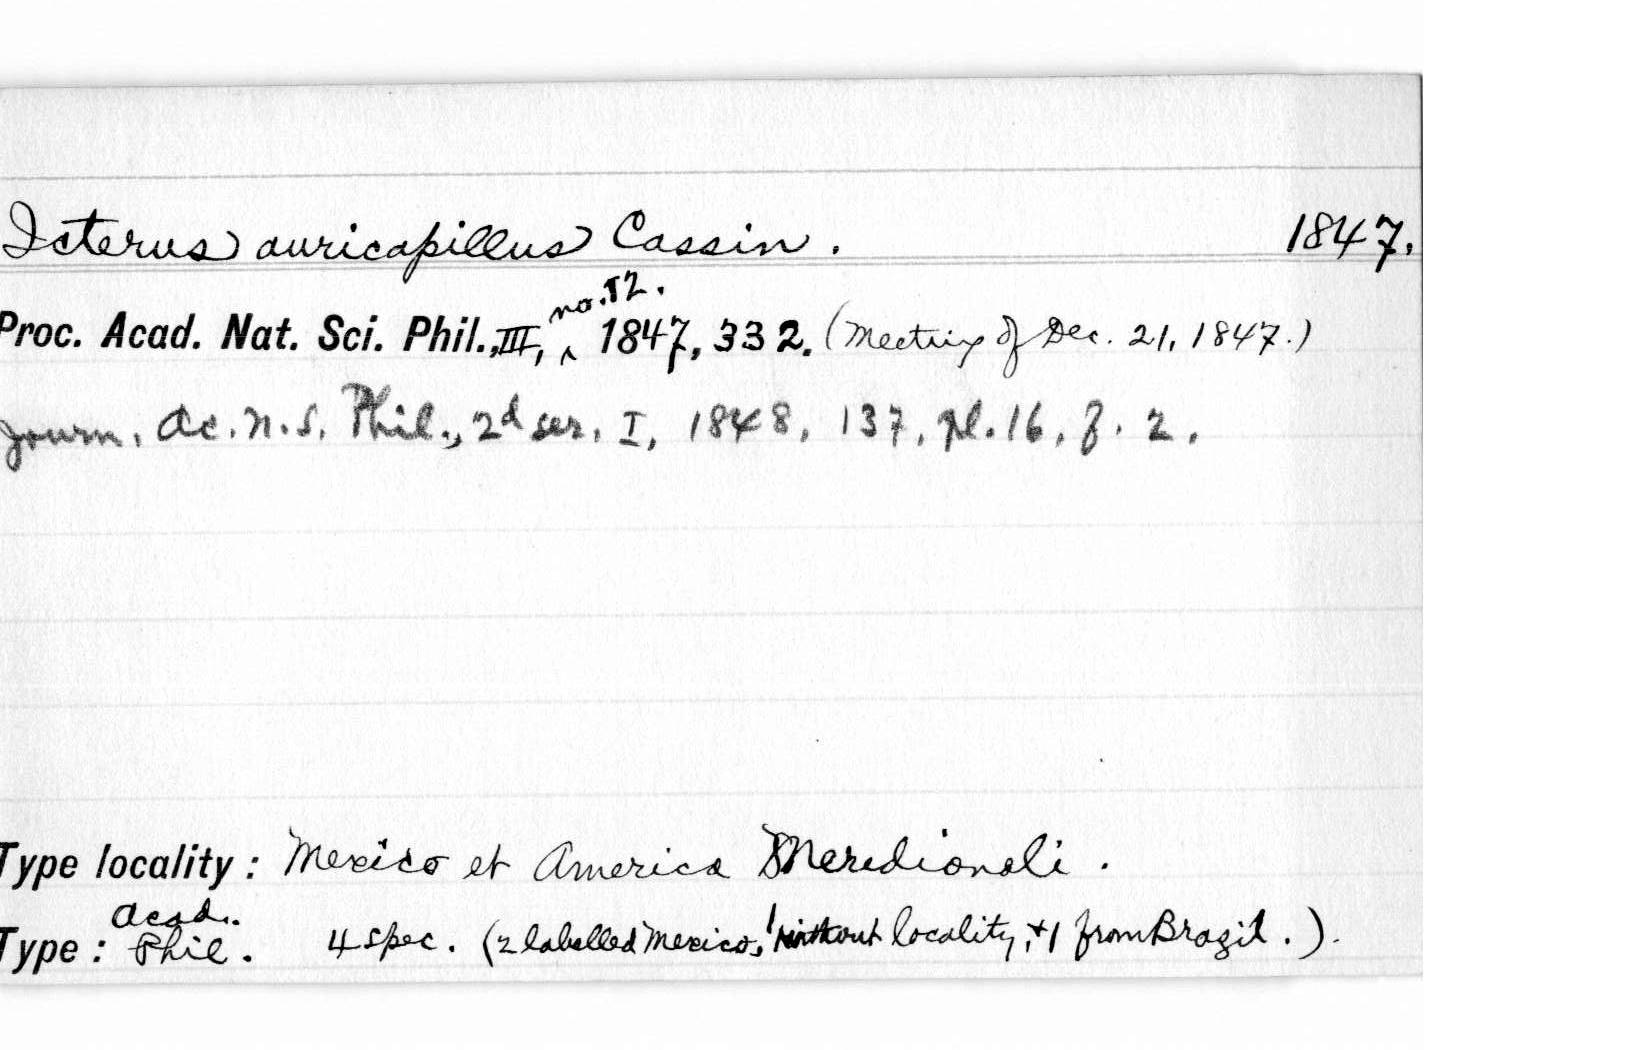 Icterus auricapillus Cassin. 1847.
no. 12.
Proc. Acad. Nat. Sci. Phil., III, ^ 1847, 332. (Meeting of Dec. 21, 1847.)
Journ. Ac. N. S. Phil., 2d ser. I, 1848, 137, pl. 16, f. 2.
Type locality: Mexico et America Meridionali.
Acad.
Type: Phil. 4 spec. (2 labelled Mexico, 1 without locality, + 1 from Brazil.).